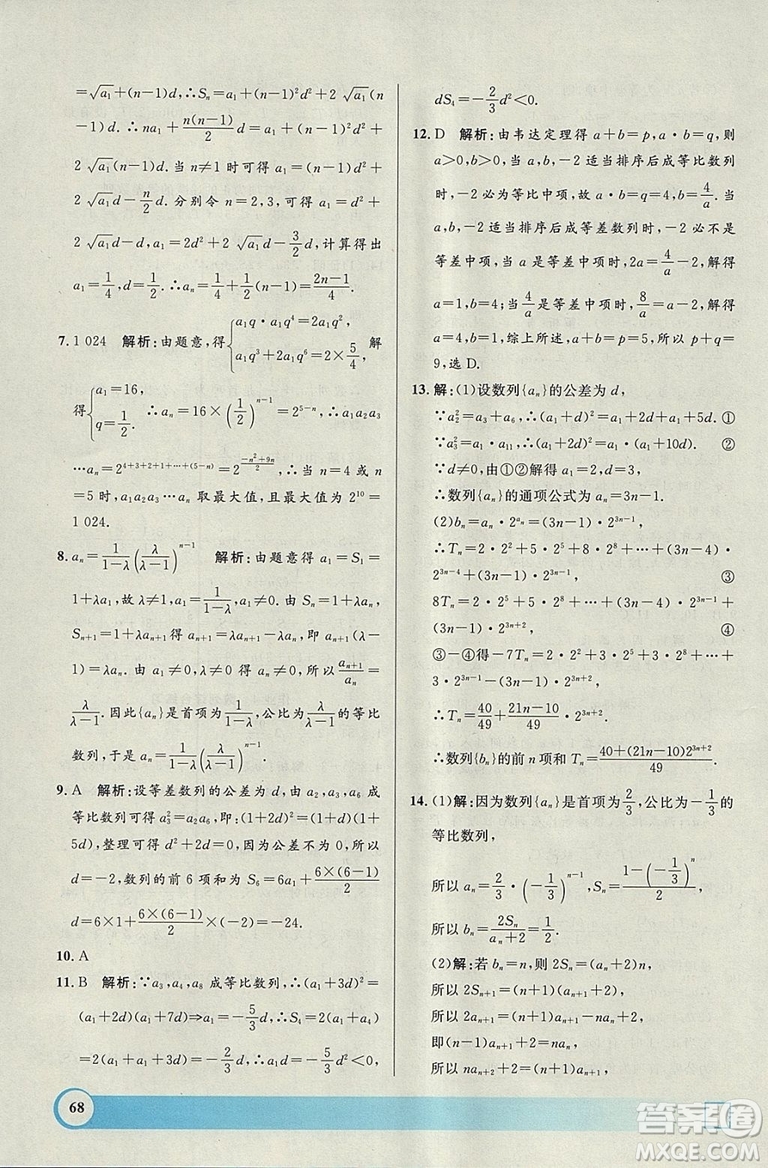 =√a₁+(n-1)d,∴Sₙ=a₁+(n-1)²d²+2 √a₁(n
-1)d. ∴na₁+n(n-1)/2 d=a₁+(n-1)²d²+
2 √a₁(n-1)d. 当 n≠1 时可得 a₁=2d²+
2 √a₁d-n/2 d. 分别令 n=2,3,可得 a₁=2d²+
2 √a₁d-d,a₁=2d²+2√a₁d-3/2 d,计算得出
a₁=1/4,d=1/2. ∴aₙ=1/4+1/2(n-1)=(2n-1)/4.
7. 1 024 解析:由题意,得{a₁q·a₁q⁴=2a₁q², a₁q³+2a₁q⁶=2×5/4, 解
得{a₁=16, q=1/2. ∴aₙ=16×(1/2)ⁿ⁻¹=2⁵⁻ⁿ,∴a₁a₂a₃
…aₙ=2^(4+3+2+1+…+(5-n))=2^((-n²+9n)/2),∴当 n=4 或 n
=5 时,a₁a₂a₃…aₙ 取最大值,且最大值为 2¹⁰=
1 024.
8. aₙ=1/(1-λ)(λ/(λ-1))ⁿ⁻¹ 解析:由题意得 a₁=S₁=
1+λa₁,故 λ≠1,a₁=1/(1-λ),a₁≠0. 由 Sₙ=1+λaₙ,
Sₙ₊₁=1+λaₙ₊₁得 aₙ₊₁=λaₙ₊₁-λaₙ,即 aₙ₊₁(λ-
1)=λaₙ. 由 a₁≠0,λ≠0 得 aₙ≠0,所以 aₙ₊₁/aₙ=
λ/(λ-1). 因此{aₙ}是首项为1/(1-λ),公比为λ/(λ-1)的等比
数列,于是 aₙ=1/(1-λ)(λ/(λ-1))ⁿ⁻¹.
9. A 解析:设等差数列的公差为 d,由 a₂,a₃,a₆ 成
等比数列可得 a₃²=a₂a₆,即:(1+2d)²=(1+d)(1+
5d),整理可得 d²+2d=0,因为公差不为 0,所以
d=-2,数列的前 6 项和为 S₆=6a₁+6×(6-1)/2
d=6×1+6×(6-1)/2×(-2)=-24.
10. A
11. B 解析:∵a₃,a₄,a₈ 成等比数列,∴(a₁+3d)²=
(a₁+2d)(a₁+7d)⇒a₁=-5/3 d,∴S₄=2(a₁+a₄)
=2(a₁+a₁+3d)=-2/3 d,∴a₁d=-5/3 d²<0,
dS₄=-2/3 d²<0.
12. D 解析:由韦达定理得 a+b=p,a·b=q,则
a>0,b>0,当 a,b,-2 适当排序后成等比数列
时,-2 必为等比中项,故 a·b=q=4,b=4/a.
当适当排序后成等差数列时,-2 必不是
等差中项,当 a 是等差中项时,2a=4/a-2,解得
a=1,b=4;当4/a是等差中项时,8/a=a-2,解得
a=4,b=1,综上所述,a+b=p=5,所以 p+q=
9,选 D.
13. 解:(1)设数列{aₙ}的公差为 d,
∵a₂²=a₃+a₆,∴(a₁+d)²=a₁+2d+a₁+5d. ①
∵a₃²=a₁·a₁₁,∴(a₁+2d)²=a₁·(a₁+10d). ②
∵d≠0,由①②解得 a₁=2,d=3.
∴数列{aₙ}的通项公式为 aₙ=3n-1.
(2)bₙ=aₙ·2^(aₙ)=(3n-1)·2³ⁿ⁻¹,
∴Tₙ=2·2²+5·2⁵+8·2⁸+…+(3n-4)·
2³ⁿ⁻⁴+(3n-1)·2³ⁿ⁻¹, ③
8Tₙ=2·2⁵+5·2⁸+…+(3n-4)·2³ⁿ⁻¹+
(3n-1)·2³ⁿ⁺², ④
③-④得-7Tₙ=2·2²+3·2⁵+3·2⁸+…+
3·2³ⁿ⁻¹-(3n-1)·2³ⁿ⁺²,
∴Tₙ=40/49+(21n-10)/49·2³ⁿ⁺².
∴数列{bₙ}的前 n 项和 Tₙ=(40+(21n-10)2³ⁿ⁺²)/49.
14. (1)解:因为数列{aₙ}是首项为2/3,公比为-1/3的
等比数列,
所以 aₙ=2/3·(-1/3)ⁿ⁻¹,Sₙ=(1-(-1/3)ⁿ)/2,
所以 bₙ=2Sₙ/(aₙ+2)=1/2.
(2)解:若 bₙ=n,则 2Sₙ=naₙ+2n,
所以 2Sₙ₊₁=(n+1)(aₙ₊₁+2),
所以 2aₙ₊₁=(n+1)aₙ₊₁-naₙ+2,
即(n-1)aₙ₊₁+2=naₙ,
所以 naₙ₊₂+2=(n+1)aₙ₊₁,
68
答案圈
MXQE.COM